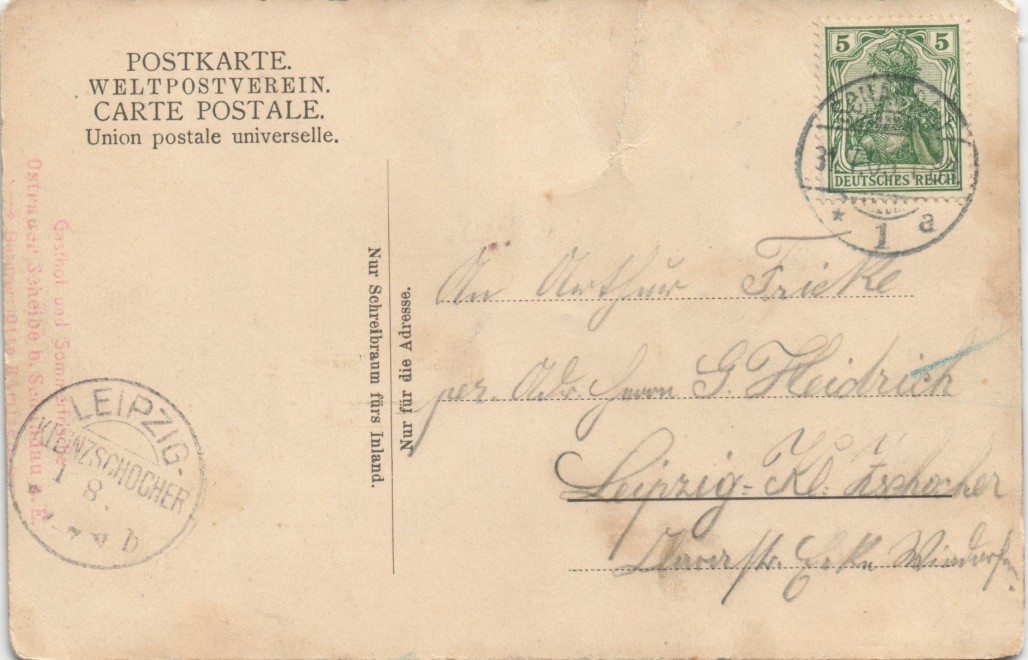 POSTKARTE.
WELTPOSTVEREIN.
CARTE POSTALE.
Union postale universelle.
5 5
DEUTSCHES REICH
1 a
Gasthof und Sommerfrische
Ostrauer Scheibe b. Schandau a. E.
LEIPZIG-
KLEINZSCHOCHER
1 8.
7 V. b
Nur Schreibraum fürs Inland.
Nur für die Adresse.
An Arthur Fricke
per. Adr. Herrn G. Heidrich
Leipzig-Kl. Zschocher
Ecke